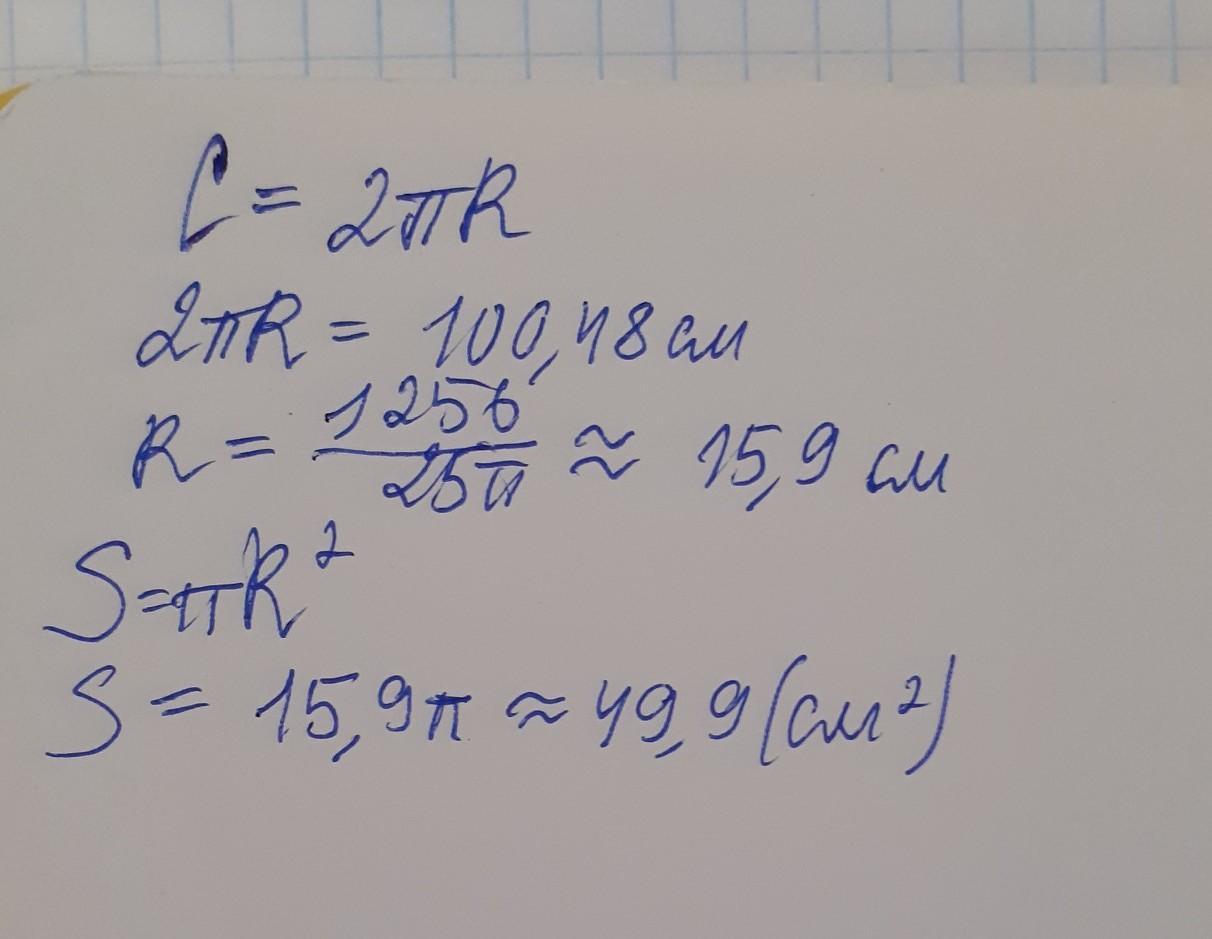 C = 2πR
2πR = 100,48 см
R = 1256/25π ≈ 15,9 см
S=πR²
S = 15,9π ≈ 49,9 (см²)